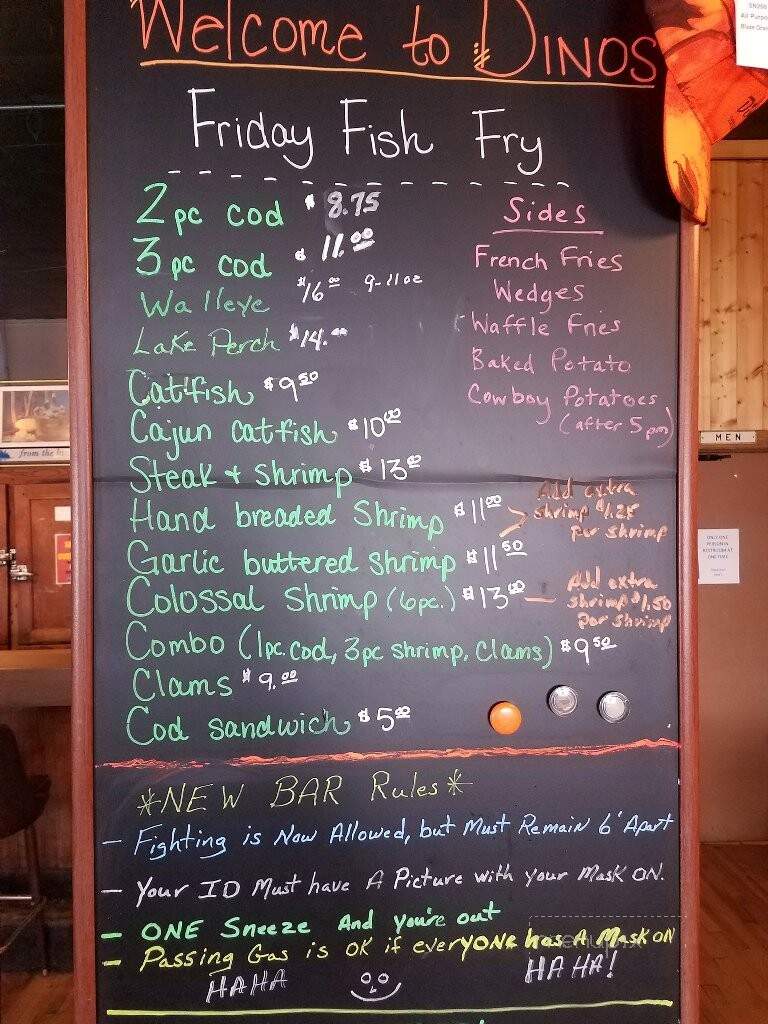 Welcome to DINOS
Friday Fish Fry
2 pc cod $8.75
3 pc cod $11.00
Walleye $16.00 9-11oz
Lake Perch $14.00
Catfish $9.50
Cajun catfish $10.00
Steak + Shrimp $13.00
Hand breaded Shrimp $11.00
Add extra
shrimp $1.25
per shrimp
Garlic buttered shrimp $11.50
Colossal Shrimp (6pc.) $13.00
Add extra
shrimp $1.50
per shrimp
Combo (1pc. cod, 3pc shrimp, Clams) $9.50
Clams $9.00
Cod sandwich $5.00
Sides
French Fries
Wedges
Waffle Fries
Baked Potato
Cowboy Potatoes
(after 5pm)
*NEW BAR Rules*
- Fighting is Now Allowed, but Must Remain 6' Apart
- Your ID Must have A Picture with your Mask ON.
- ONE Sneeze And you're out
- Passing Gas is OK if everyONE has A MASK ON
HAHA HA HA!
MEN
ONLY ONE
PERSON IN
RESTROOM AT
ONE TIME
from the